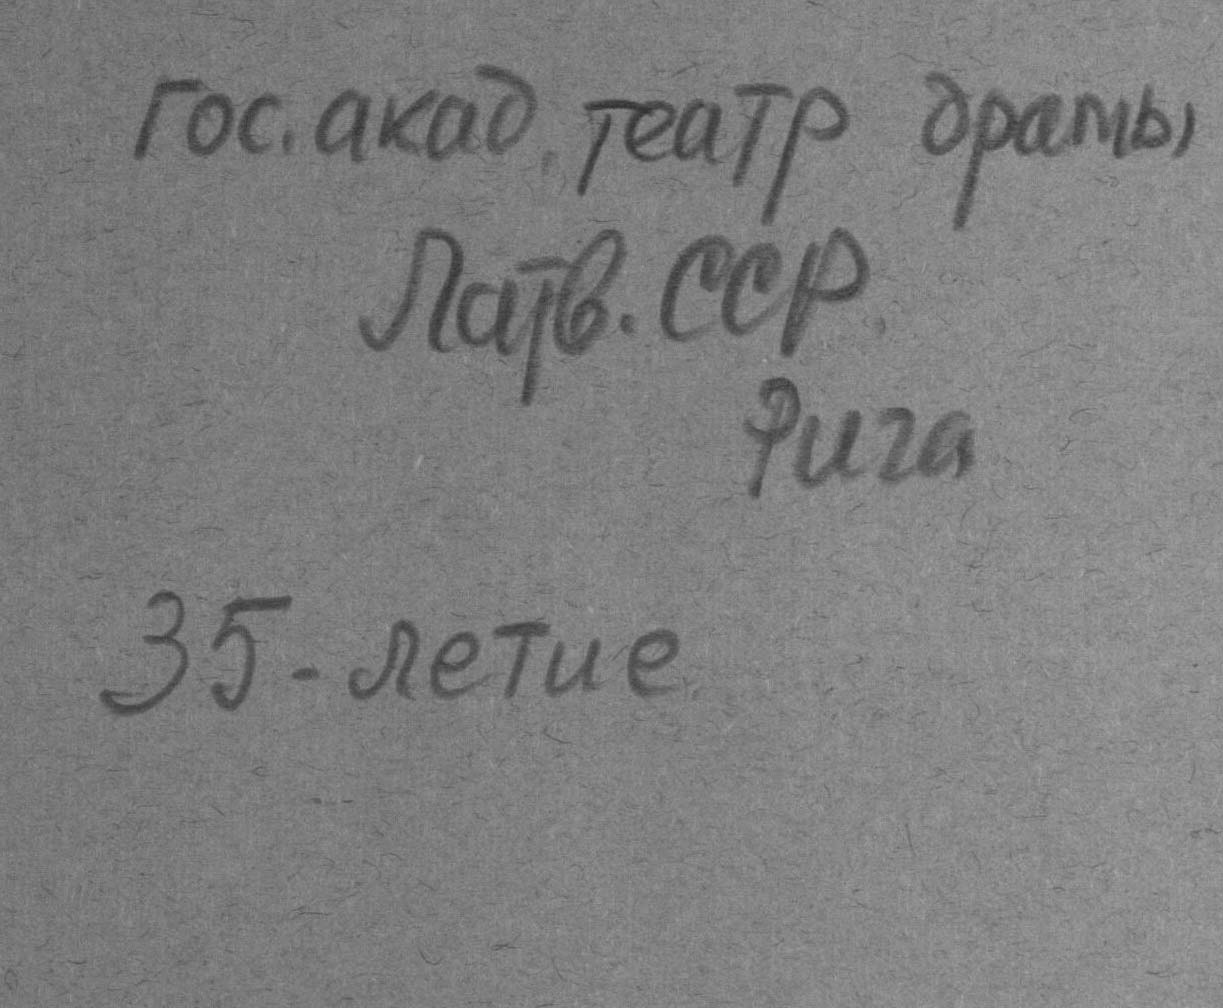 Гос. акад. театр драмы
Латв. ССР.
Рига
35-летие